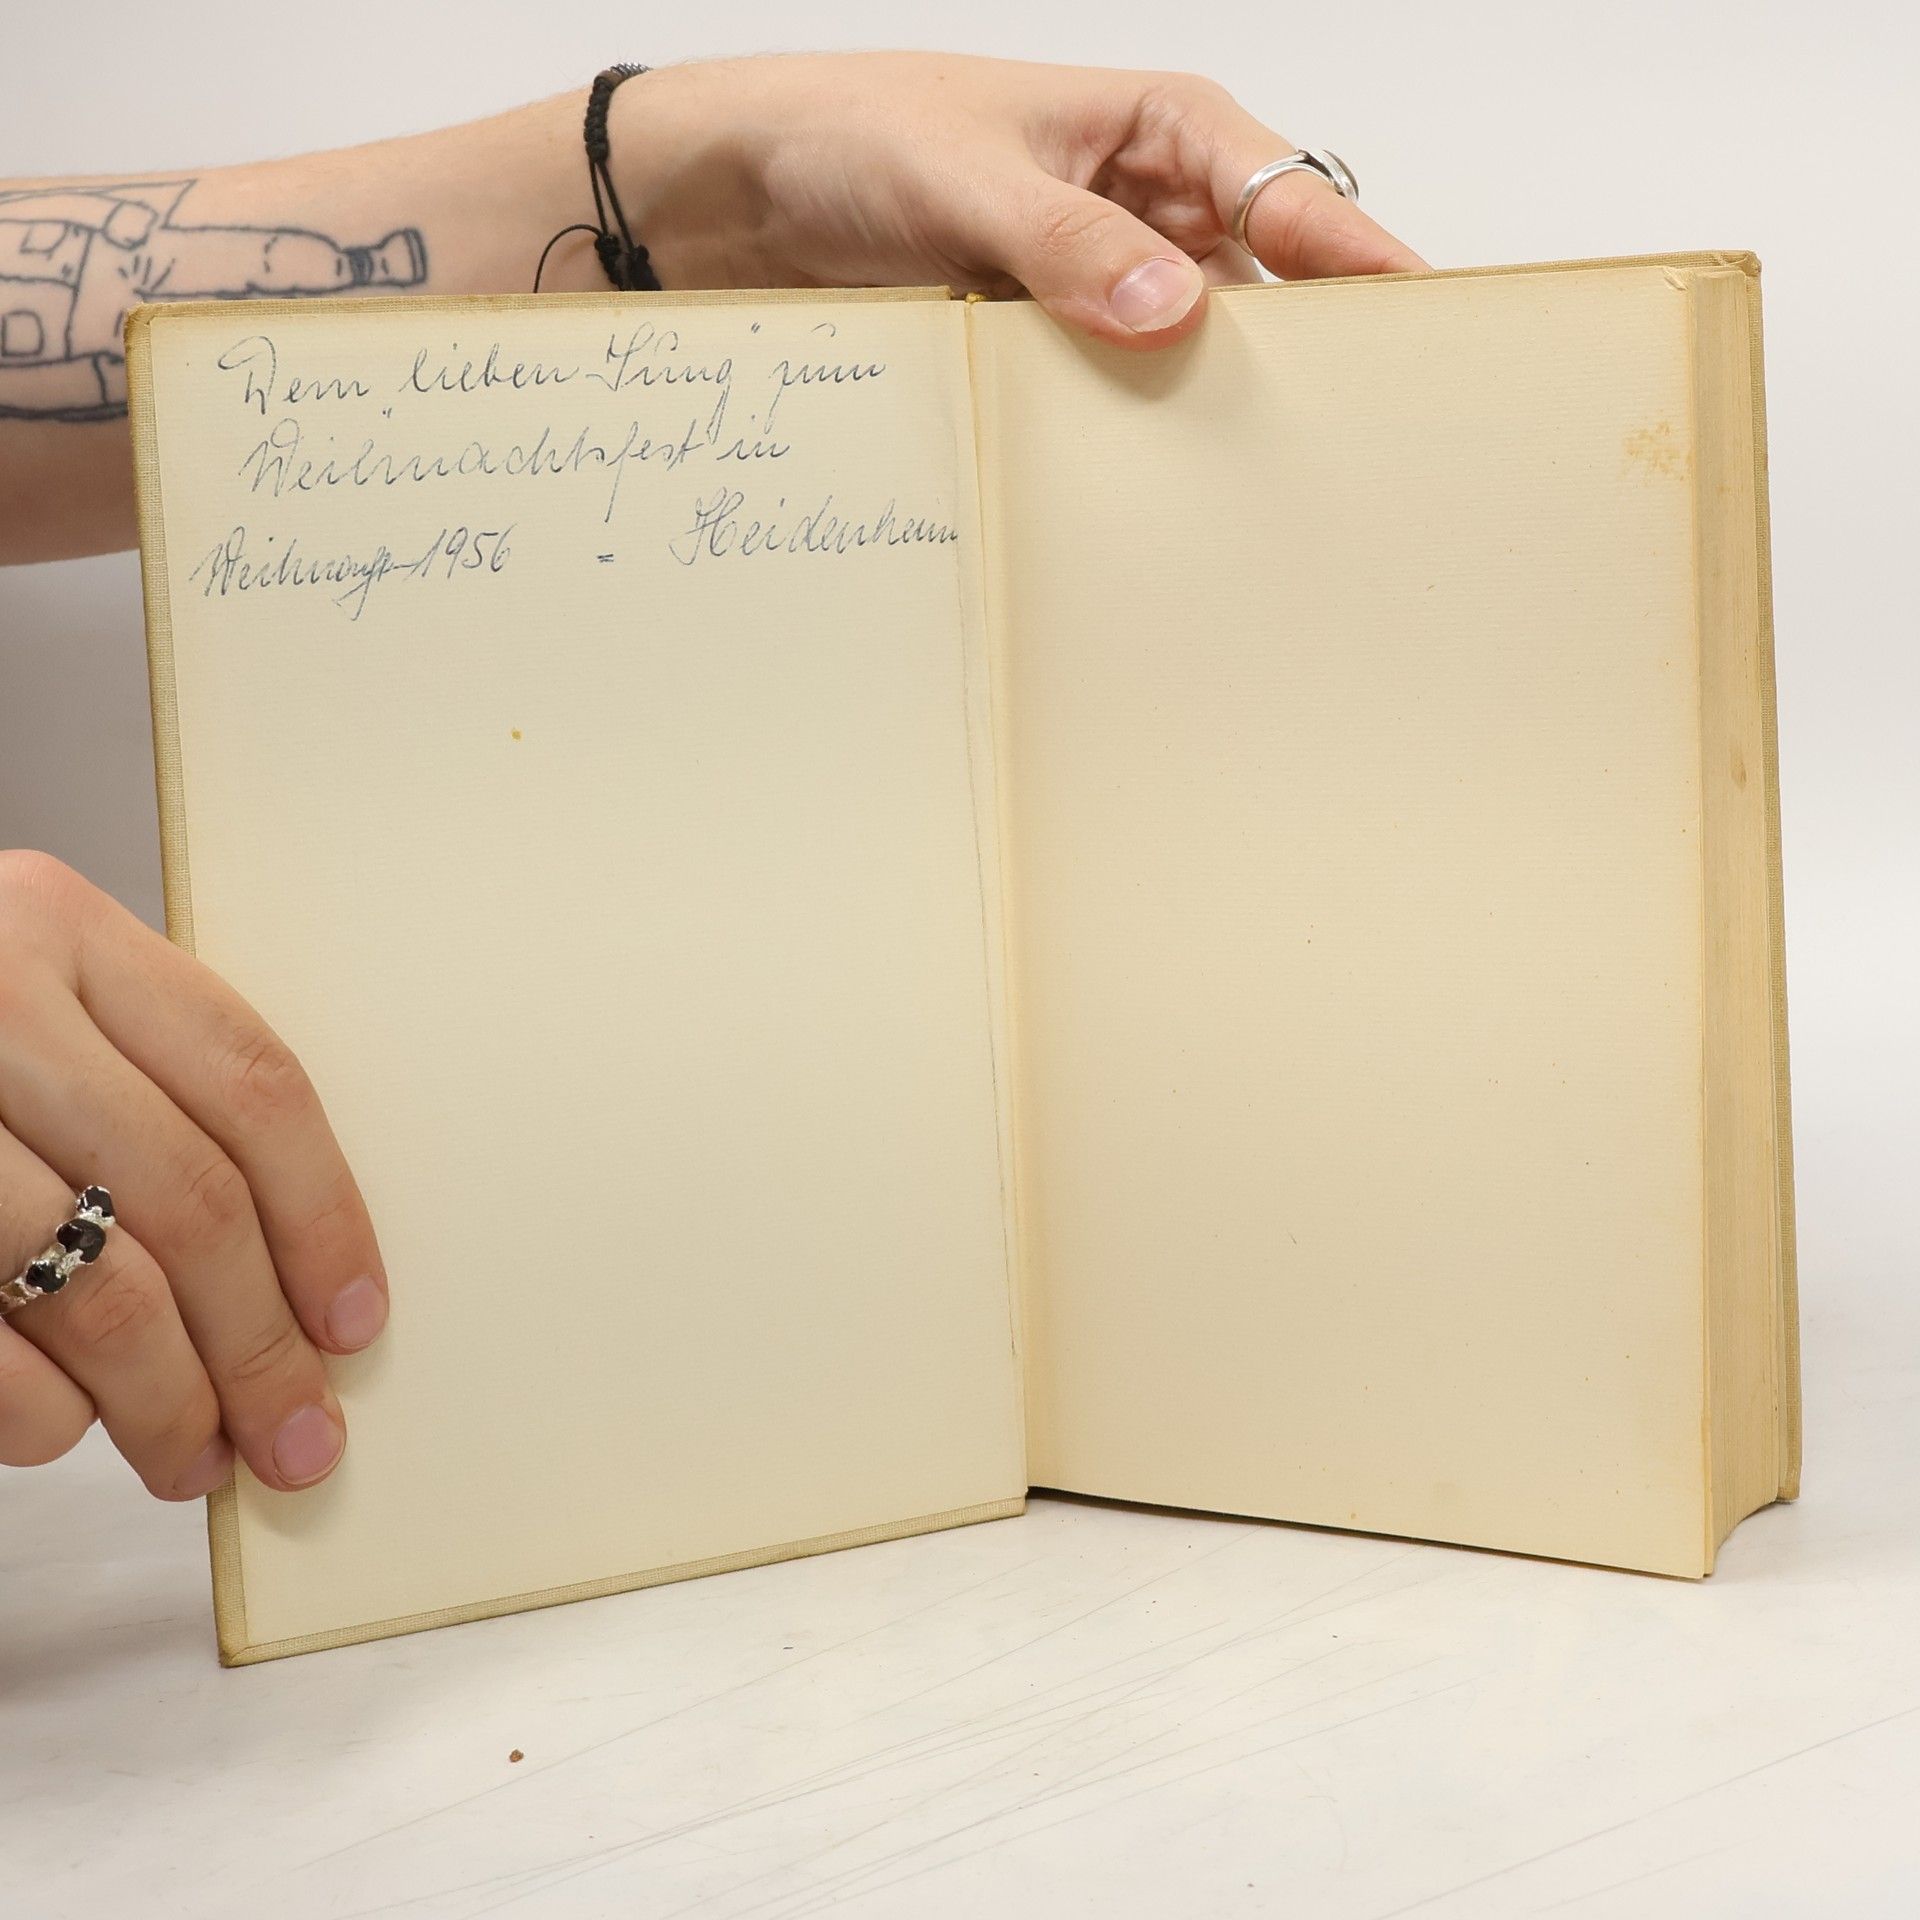 Dem "lieben Jung" zum
Weihnachtsfest in
1956 = Heidenheim